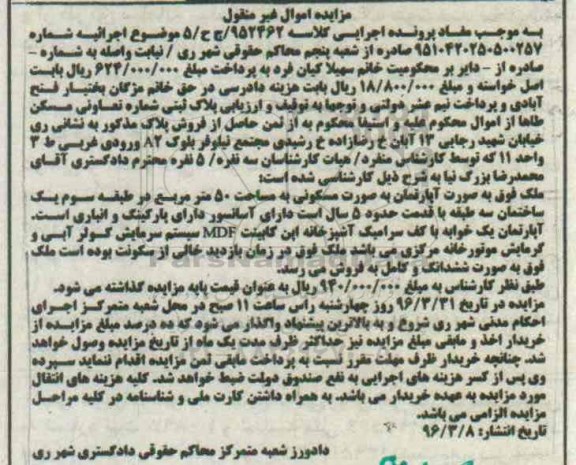 مزایده اموال غیر منقول
به موجب مفاد پرونده اجرایی کلاسه ۹۵۲۴۶۲/ج ح/۵ موضوع اجرائیه شماره
۹۵۱۰۴۲۰۲۵۰۵۰۰۲۵۷ صادره از شعبه پنجم محاکم حقوقی شهر ری / نیابت واصله به شماره -
صادره از - دایر بر محکومیت خانم سهیلا کیان فرد به پرداخت مبلغ ۶۲۴/۰۰۰/۰۰۰ ریال بابت
اصل خواسته و مبلغ ۱۸/۸۰۰/۰۰۰ ریال بابت هزینه دادرسی در حق خانم مژگان بختیار فتح
آبادی و پرداخت نیم عشر دولتی و توجها به توقیف و ارزیابی پلاک ثبتی شماره تعاونی مسکن
طاها از اموال محکوم علیه و استیفا محکوم به از ثمن حاصل از فروش پلاک مذکور به نشانی ری
خیابان شهید رجایی ۱۳ آبان خ رضازاده خ رشیدی مجتمع نیلوفر بلوک A۲ ورودی غربی ط ۳
واحد ۱۱ که توسط کارشناس منفرد/ هیات کارشناسان سه نفره/ ۵ نفره محترم دادگستری آقای
محمدرضا بزرگ نیا به شرح ذیل کارشناسی شده است:
ملک فوق به صورت آپارتمان به صورت مسکونی به مساحت ۵۰ متر مربع در طبقه سوم یک
ساختمان سه طبقه با قدمت حدود ۵ سال است دارای آسانسور دارای پارکینگ و انباری است.
آپارتمان یک خوابه با کف سرامیک آشپزخانه اپن کابینت MDF سیستم سرمایش کولر آبی و
گرمایش موتورخانه مرکزی می باشد ملک فوق در زمان بازدید خالی از سکونت بوده است ملک
فوق به صورت ششدانگ و کامل به فروش می رسد.
طبق نظر کارشناس به مبلغ ۹۴۰/۰۰۰/۰۰۰ ریال به عنوان قیمت پایه مزایده گذاشته می شود.
مزایده در تاریخ ۹۶/۳/۳۱ روز چهارشنبه راس ساعت ۱۱ صبح در محل شعبه متمرکز اجرای
احکام مدنی شهر ری شروع و به بالاترین پیشنهاد واگذار می شود که ده درصد مبلغ مزایده از
خریدار اخذ و مابقی مبلغ مزایده نیز حداکثر ظرف مدت یک ماه از تاریخ مزایده وصول خواهد
شد. چنانچه خریدار ظرف مهلت مقرر نسبت به پرداخت مابقی ثمن مزایده اقدام ننماید سپرده
وی پس از کسر هزینه های اجرایی به نفع صندوق دولت ضبط خواهد شد. کلیه هزینه های انتقال
مورد مزایده به عهده خریدار می باشد. به همراه داشتن کارت ملی و شناسنامه در کلیه مراحل
مزایده الزامی می باشد.
تاریخ انتشار: ۹۶/۳/۸
دادورز شعبه متمرکز محاکم حقوقی دادگستری شهر ری